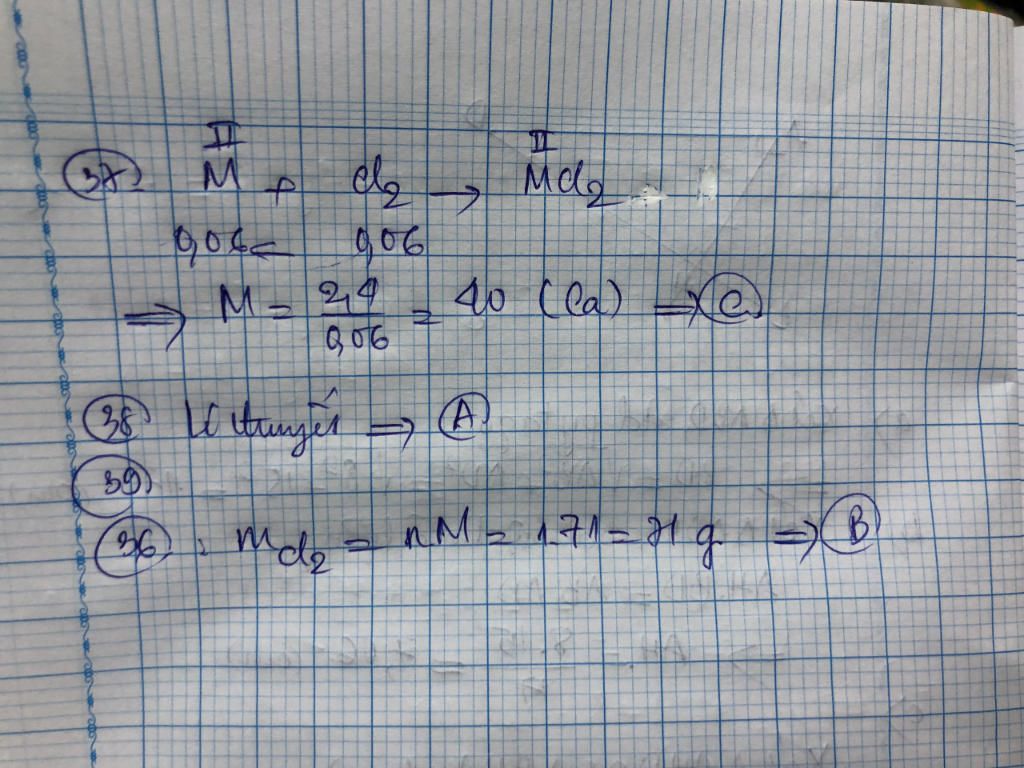 II II
37) M + Cl2 → MCl2
0,06 ← 0,06
⇒ M = 2,4 / 0,06 = 40 (Ca) ⇒ C
38) Lí thuyết ⇒ A
39)
36) : mCl2 = nM = 1.71 = 71 g ⇒ B